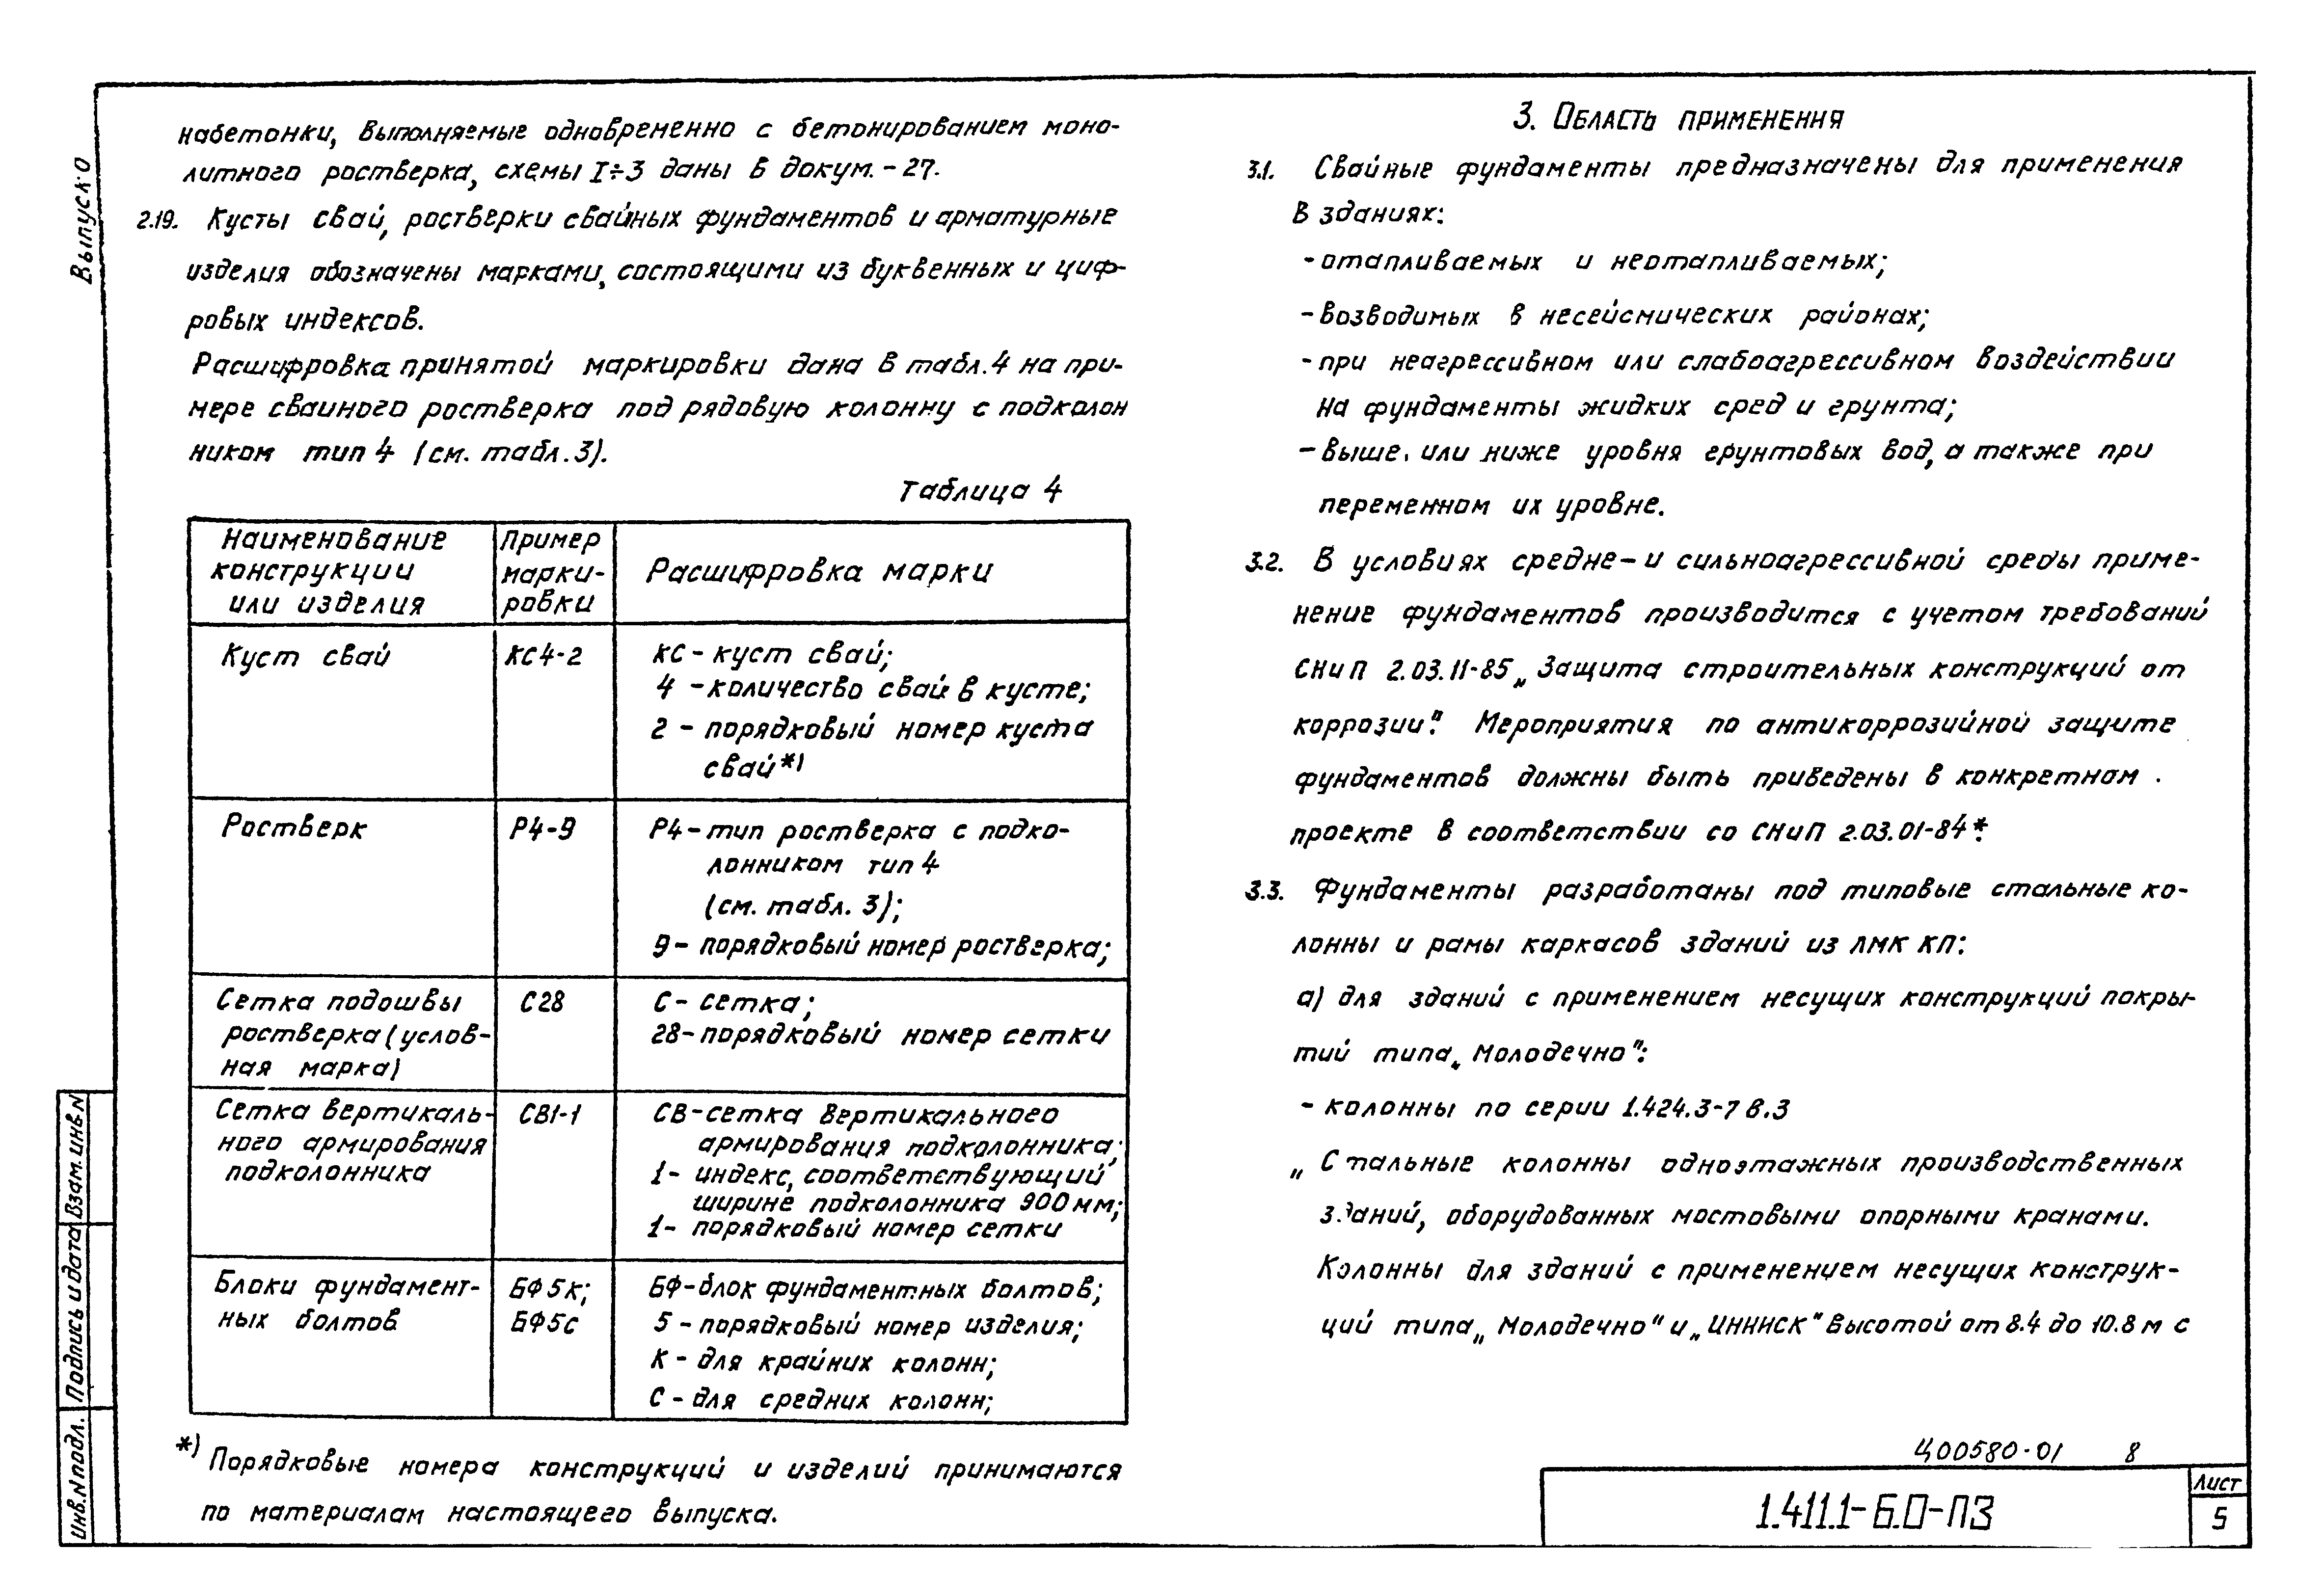 Выпуск 0
набетонки, выполняемые одновременно с бетонированием моно-
литного ростверка, схемы 1÷3 даны в докум. - 27.
2.19. Кусты свай, ростверки свайных фундаментов и арматурные
изделия обозначены марками, состоящими из буквенных и циф-
ровых индексов.
Расшифровка принятой маркировки дана в табл. 4 на при-
мере свайного ростверка под рядовую колонну с подколон
ником тип 4 (см. табл. 3).
Таблица 4
Наименование
конструкции
или изделия
Пример
марки-
ровки
Расшифровка марки
Куст свай
КС4-2
КС - куст свай;
4 - количество свай в кусте;
2 - порядковый номер куста
свай*)
Ростверк
Р4-9
Р4 - тип ростверка с подко-
лонником тип 4
(см. табл. 3);
9 - порядковый номер ростверка;
Сетка подошвы
ростверка (услов-
ная марка)
С28
С - сетка;
28 - порядковый номер сетки
Сетка вертикаль-
ного армирования
подколонника
СВ1-1
СВ - сетка вертикального
армирования подколонника;
1 - индекс, соответствующий
ширине подколонника 900 мм;
1 - порядковый номер сетки
Блоки фундамент-
ных болтов
БФ5к;
БФ5с
БФ - блок фундаментных болтов;
5 - порядковый номер изделия;
К - для крайних колонн;
С - для средних колонн;
*) Порядковые номера конструкций и изделий принимаются
по материалам настоящего выпуска.
3. Область применения
3.1. Свайные фундаменты предназначены для применения
в зданиях:
- отапливаемых и неотапливаемых;
- возводимых в несейсмических районах;
- при неагрессивном или слабоагрессивном воздействии
на фундаменты жидких сред и грунта;
- выше или ниже уровня грунтовых вод, а также при
переменном их уровне.
3.2. В условиях средне- и сильноагрессивной среды приме-
нение фундаментов производится с учетом требований
СНиП 2.03.11-85 „Защита строительных конструкций от
коррозии". Мероприятия по антикоррозийной защите
фундаментов должны быть приведены в конкретном
проекте в соответствии со СНиП 2.03.01-84*.
3.3. Фундаменты разработаны под типовые стальные ко-
лонны и рамы каркасов зданий из ЛМК КП:
а) для зданий с применением несущих конструкций покры-
тий типа „Молодечно":
- колонны по серии 1.424.3-7 в.3
„Стальные колонны одноэтажных производственных
зданий, оборудованных мостовыми опорными кранами.
Колонны для зданий с применением несущих конструк-
ций типа „Молодечно" и „ЦНИИСК" высотой от 8.4 до 10.8 м с
Ц00580-01 8
1.411.1-6.0-ПЗ
Лист
5
Инв.№ подл.
Подпись и дата
Взам. инв. №